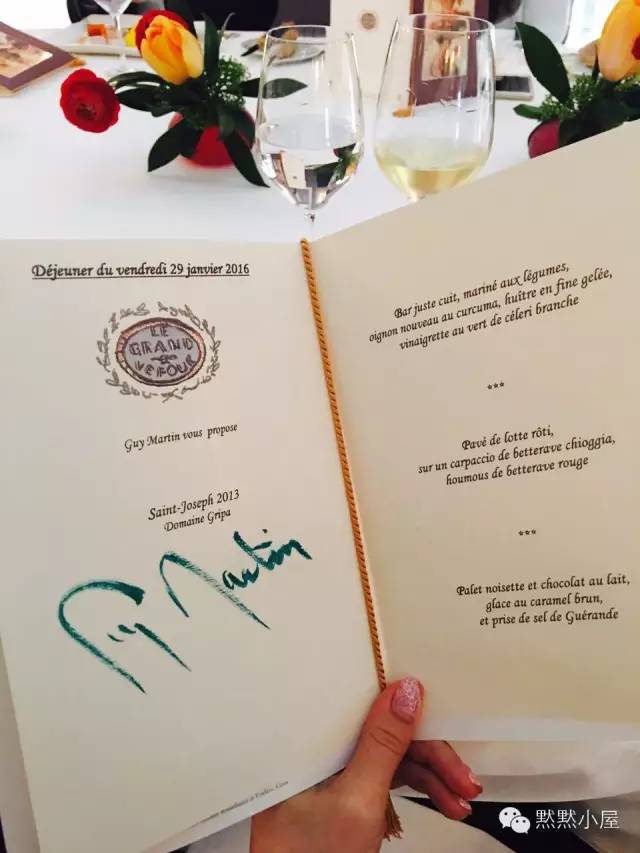 Déjeuner du vendredi 29 janvier 2016
LE
GRAND
VEFOUR
Guy Martin vous propose
Saint-Joseph 2013
Domaine Gripa
Guy Martin
Bar juste cuit, mariné aux légumes,
oignon nouveau au curcuma, huître en fine gelée,
vinaigrette au vert de céleri branche
***
Pavé de lotte rôti,
sur un carpaccio de betterave chioggia,
houmous de betterave rouge
***
Palet noisette et chocolat au lait,
glace au caramel brun,
et prise de sel de Guérande
默默小屋